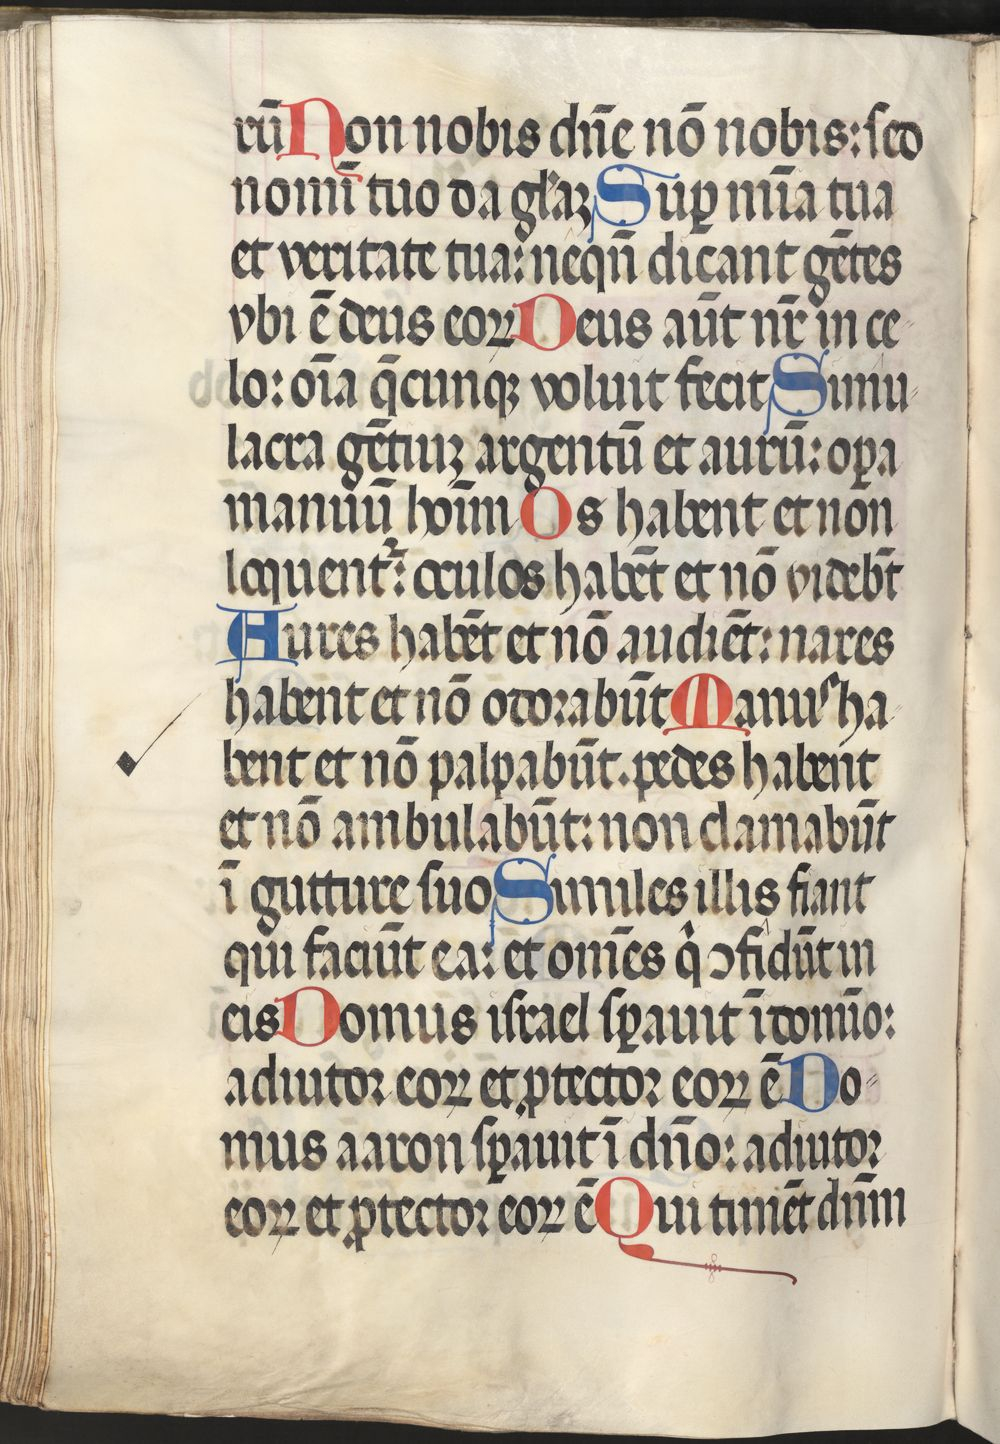 rū Non nobis dn̄e nō nobis: sed
nomī tuo da gl'aꝫ Suꝑ mīa tua
et veritate tua: neqn̄ dicant gētes
vbi ē deus eoꝝ Deus aūt nr̄ in ce-
lo: oīa q̄cunqꝫ voluit fecit Simu-
lacra gētiuꝫ argentū et aurū: oꝑa
manuū hoīm Os habent et non
loquentᷣ: oculos habēt et nō videbt̄
Aures habēt et nō audiēt: nares
habent et nō odorabūt Manus ha-
bent et nō palpabūt. pedes habent
et nō ambulabūt: non clamabūt
ī gutture suo Similes illis fiant
qui faciūt ea: et om̄es qͥ ↄfidūt in
eis Domus israel sꝑauit ī domīo:
adiutor eoꝝ et ꝓtector eoꝝ ē Do-
mus aaron sꝑauit ī dn̄o: adiutor
eoꝝ et ꝓtector eoꝝ ē Qui timēt dn̄m